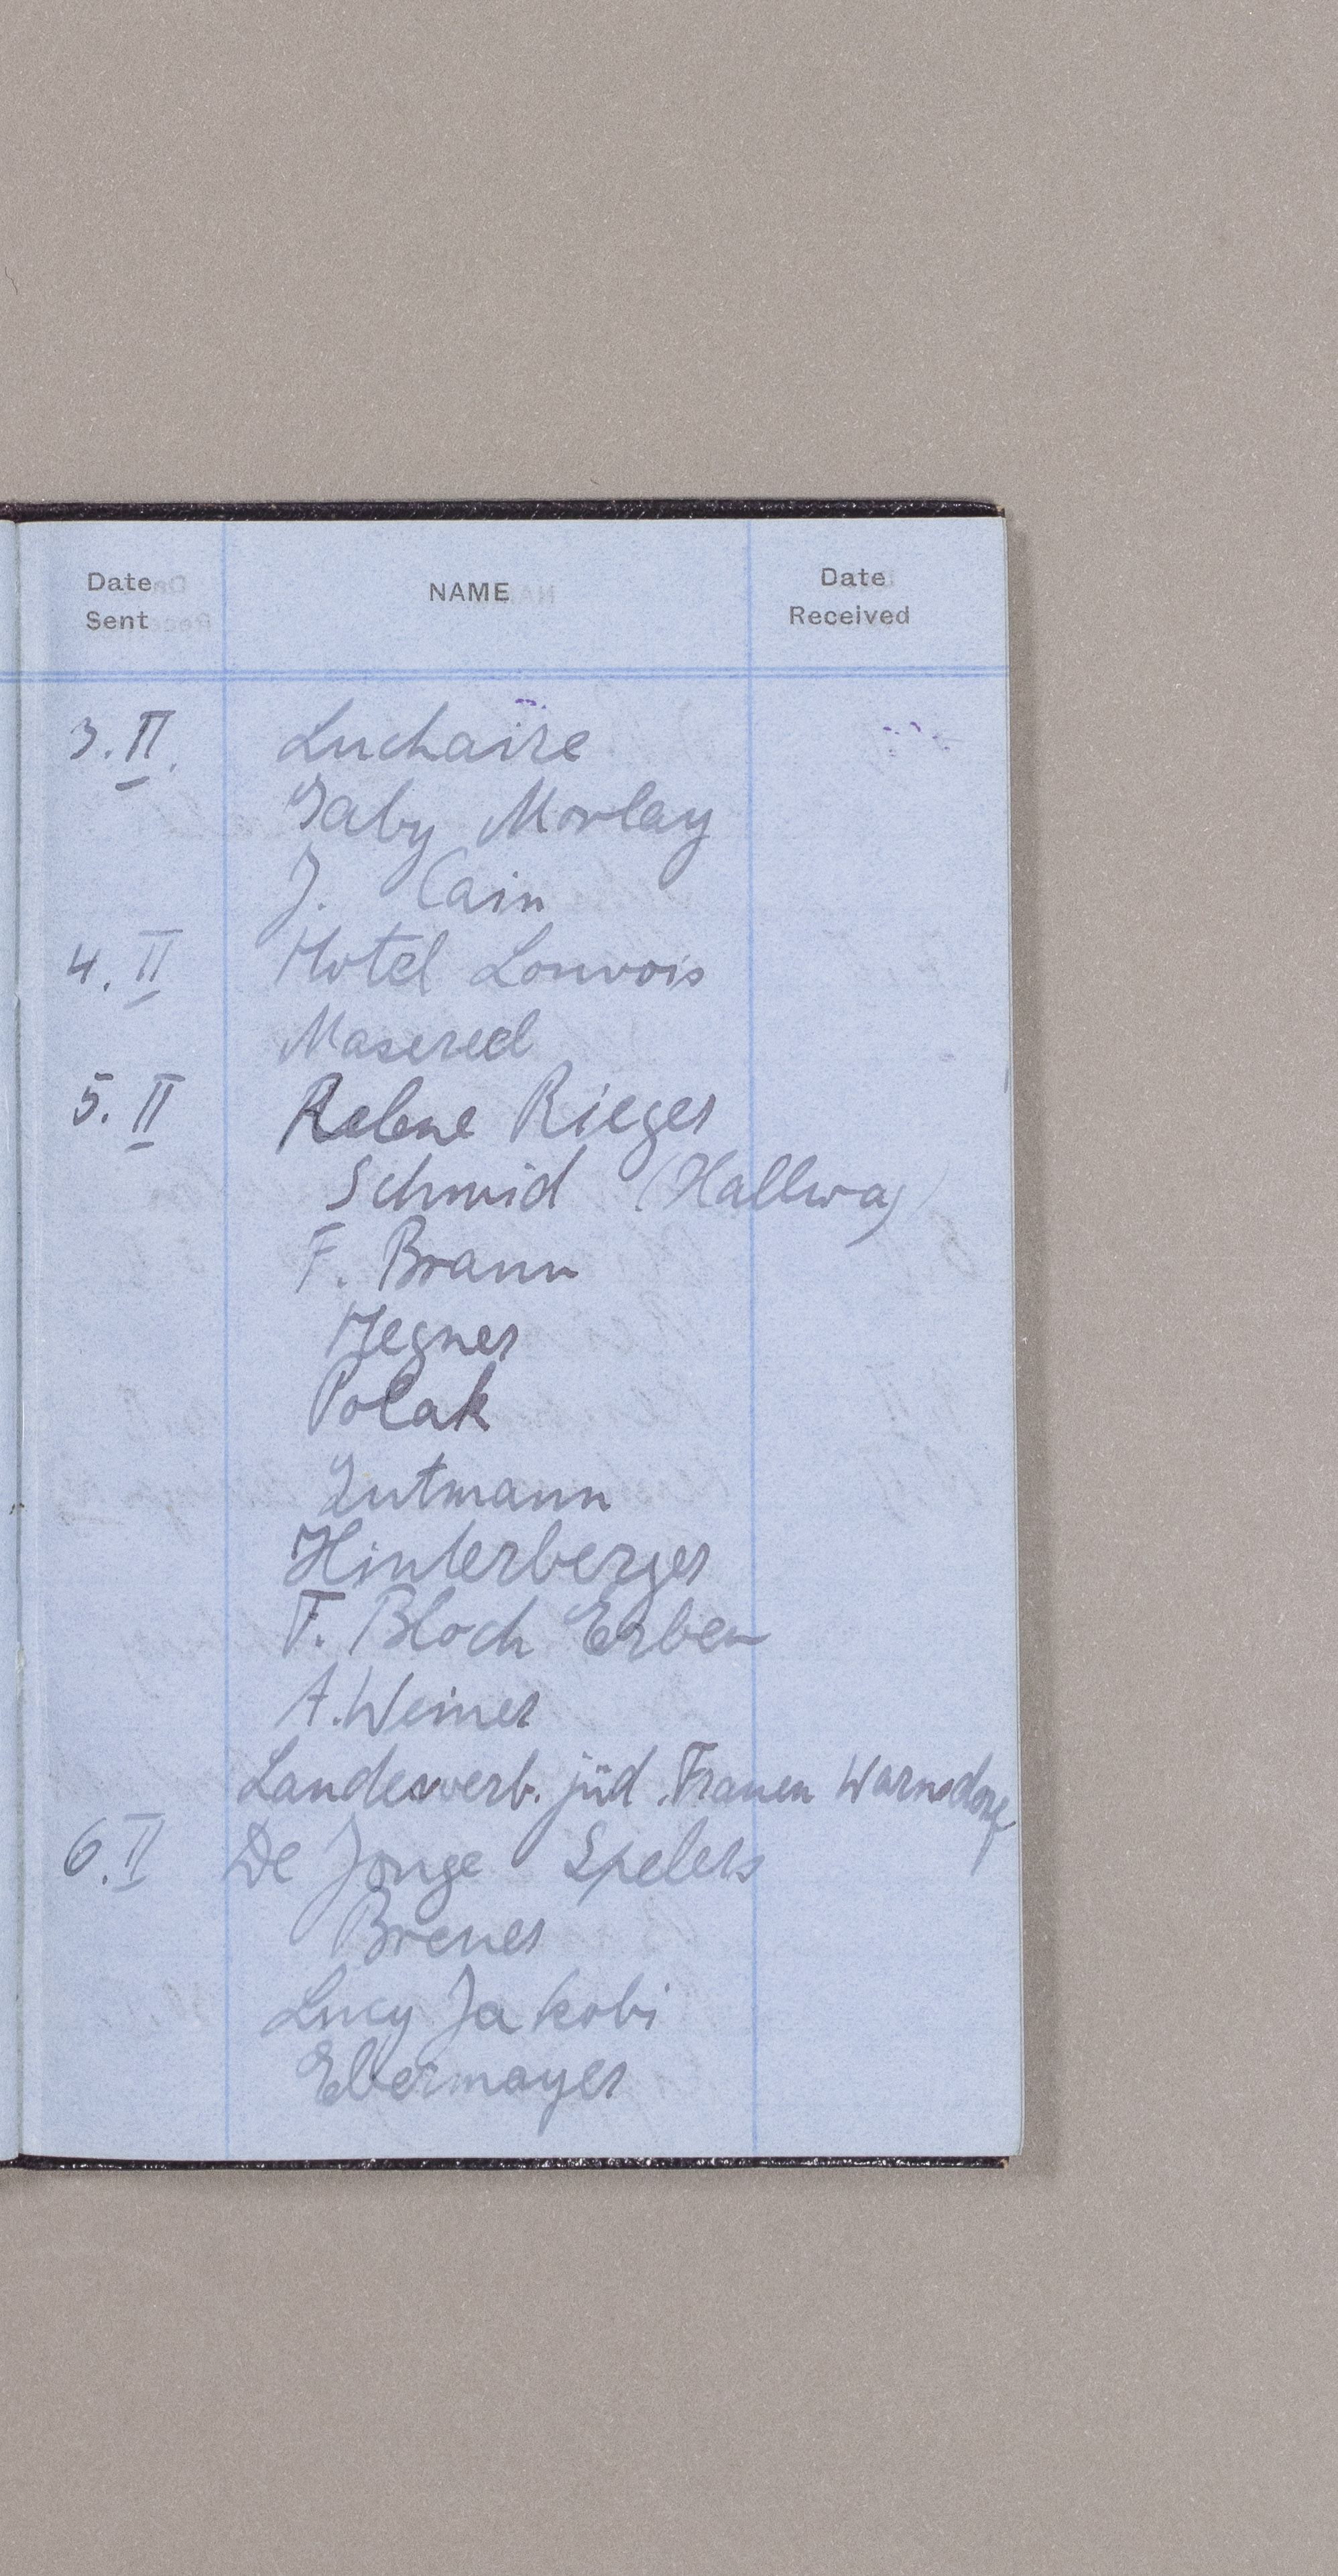 Date Sent NAME Date Received
3. II. Luchaire
Gaby Morlay
J. Cain
4. II Hotel Louvois
Masereel
5. II Rieger
Schmid (Hallwag)
F. Braun
Hegner
Polak
Gutmann
Hinterberger
F. Bloch Erben
A. Weiner
Landesverb. jüd. Frauen Warnsdorf
6. II De Jonge Spelers
Brener
Lucy Jakobi
Ebermayer